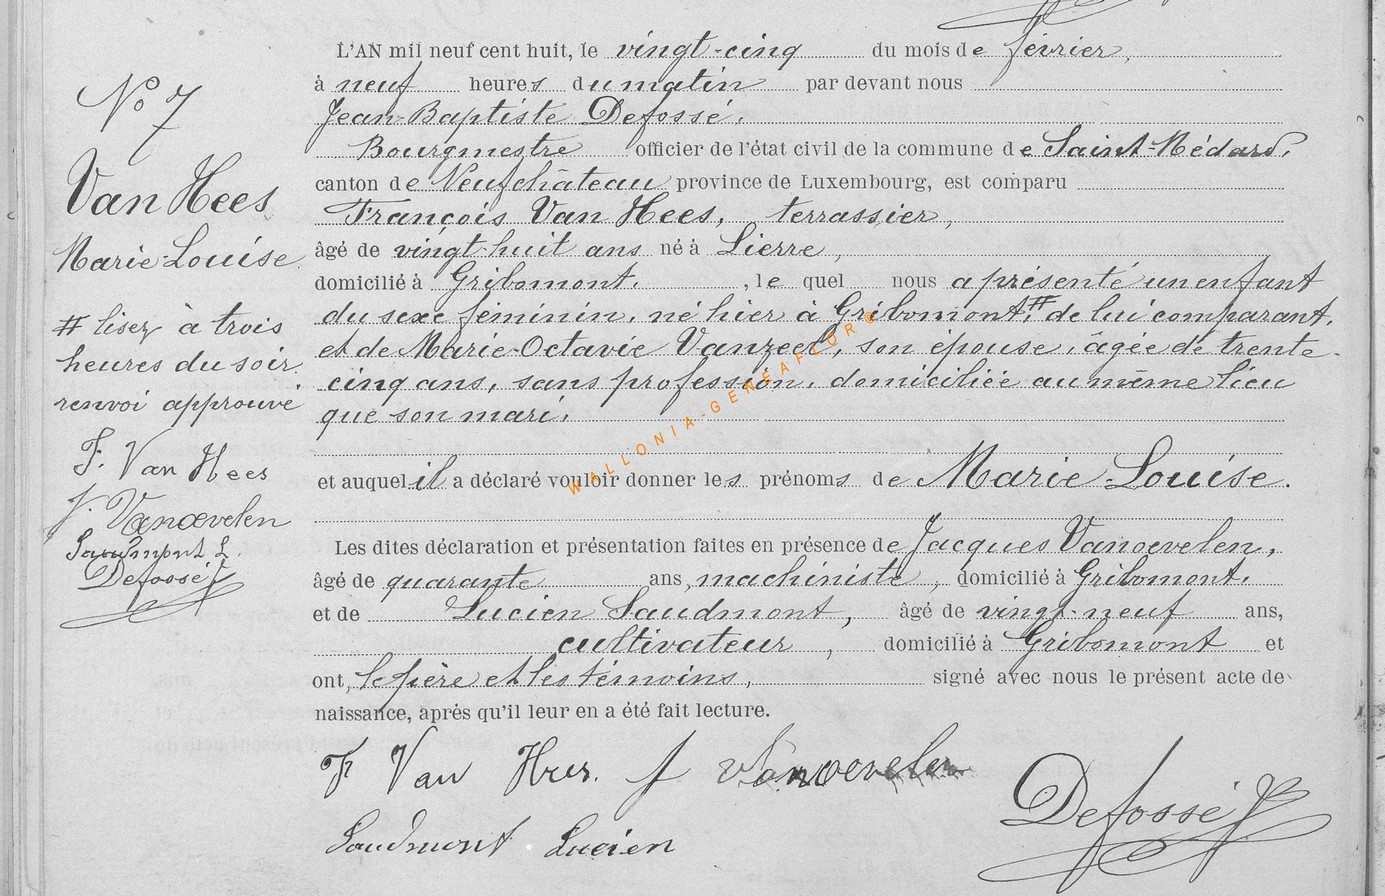 N° 7
Van Hees
Marie-Louise.
# lisez à trois
heures du soir.
renvoi approuvé
F. Van Hees
J. Vanoevelen
Saudmont L.
Defossé
L'AN mil neuf cent huit, le vingt-cinq du mois de février,
à neuf heures du matin par devant nous
Jean-Baptiste Defossé,
Bourgmestre officier de l'état civil de la commune de Saint-Médard,
canton de Neufchâteau province de Luxembourg, est comparu
François Van Hees, terrassier,
âgé de vingt-huit ans né à Lierre,
domicilié à Gribomont, le quel nous a présenté un enfant
du sexe féminin, né hier à Gribomont,# de lui comparant,
et de Marie-Octavie Vanzeel, son épouse, âgée de trente-
cinq ans, sans profession, domiciliée au même lieu
que son mari,
et auquel il a déclaré vouloir donner les prénoms de Marie-Louise.
Les dites déclaration et présentation faites en présence de Jacques Vanoevelen,
âgé de quarante ans, machiniste, domicilié à Gribomont,
et de Lucien Saudmont, âgé de vingt-neuf ans,
cultivateur, domicilié à Gribomont et
ont, le père et les témoins, signé avec nous le présent acte de
naissance, après qu'il leur en a été fait lecture.
F. Van Hees. J Vanoevelen
Saudmont Lucien
Defossé
WALLONIA-GENEAFLOR©